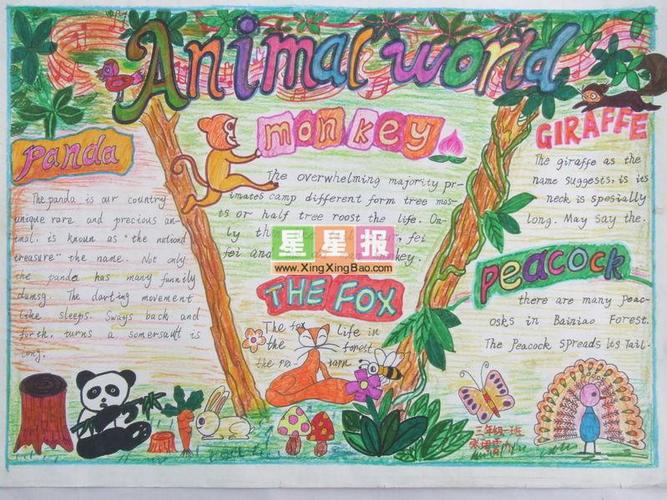 Animal world
Panda
The panda is our country
unique rare and precious an-
imal, is known as "the national
treasure" the name. Not only
the panda has many funnily
clumsy. The darting movement
like sleeps. Sways back and
forth, turns a somersault is
long.
monkey
The overwhelming majority pr-
imates camp different form tree mos-
ts or half tree roost the life. On-
ly th
fei
fei and
key.
星星报
www.XingXingBao.com
THE FOX
The fox life in
the forest
the
GIRAFFE
The giraffe as the
name suggests, is its
neck is spesially
long. May say the.
Peacock
there are many Peac-
osks in Bainiao Forest.
The Peacock spreads its Tail-
三年级一班